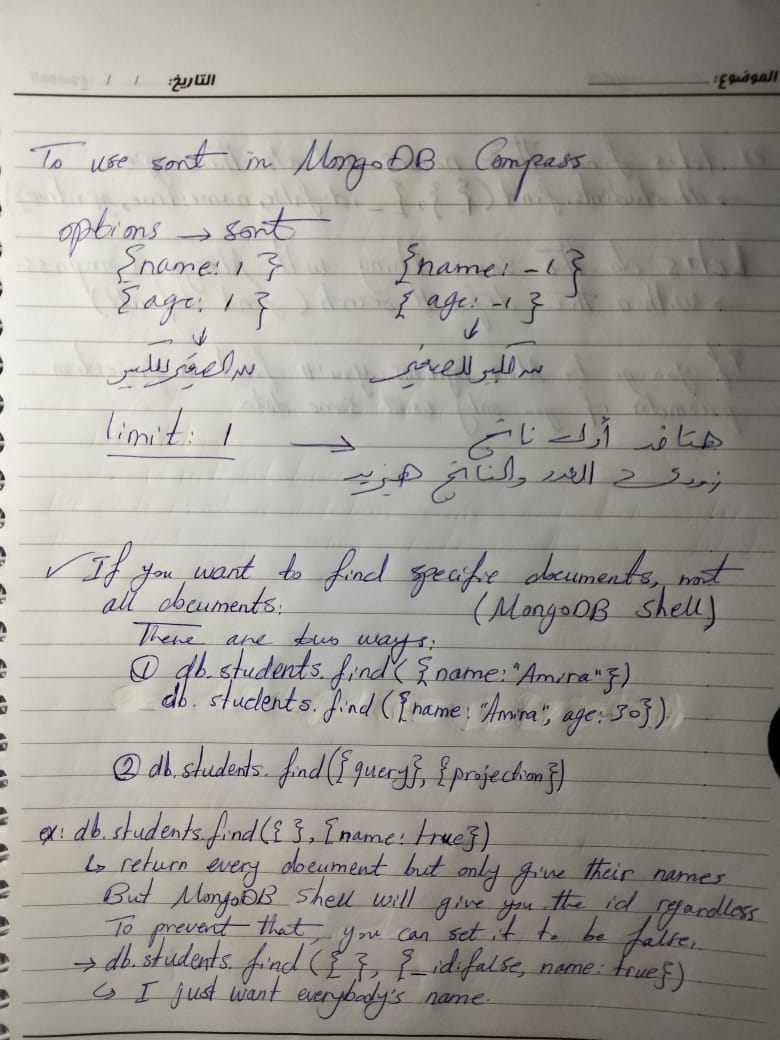 الموضوع: التاريخ: / /
To use sort in MongoDB Compass
options → sort
{name: 1 } {name: -1 }
{age: 1 } { age: -1 }
↓ ↓
من الصغير للكبير من الكبير للصغير
limit: 1 → هتاخد أول ناتج
زودي العدد والناتج هيزيد
✓ If you want to find specific documents, not
all documents: (MongoDB shell)
There are two ways:
① db.students.find({name:"Amira"})
db.students.find({name:"Amira", age:30})
② db.students.find({query}, {projection})
ex: db.students.find({ }, {name: true})
↳ return every document but only give their names
But MongoDB shell will give you the id regardless
To prevent that, you can set it to be false.
→ db.students.find({ }, {_id:false, name: true})
↳ I just want everybody's name.